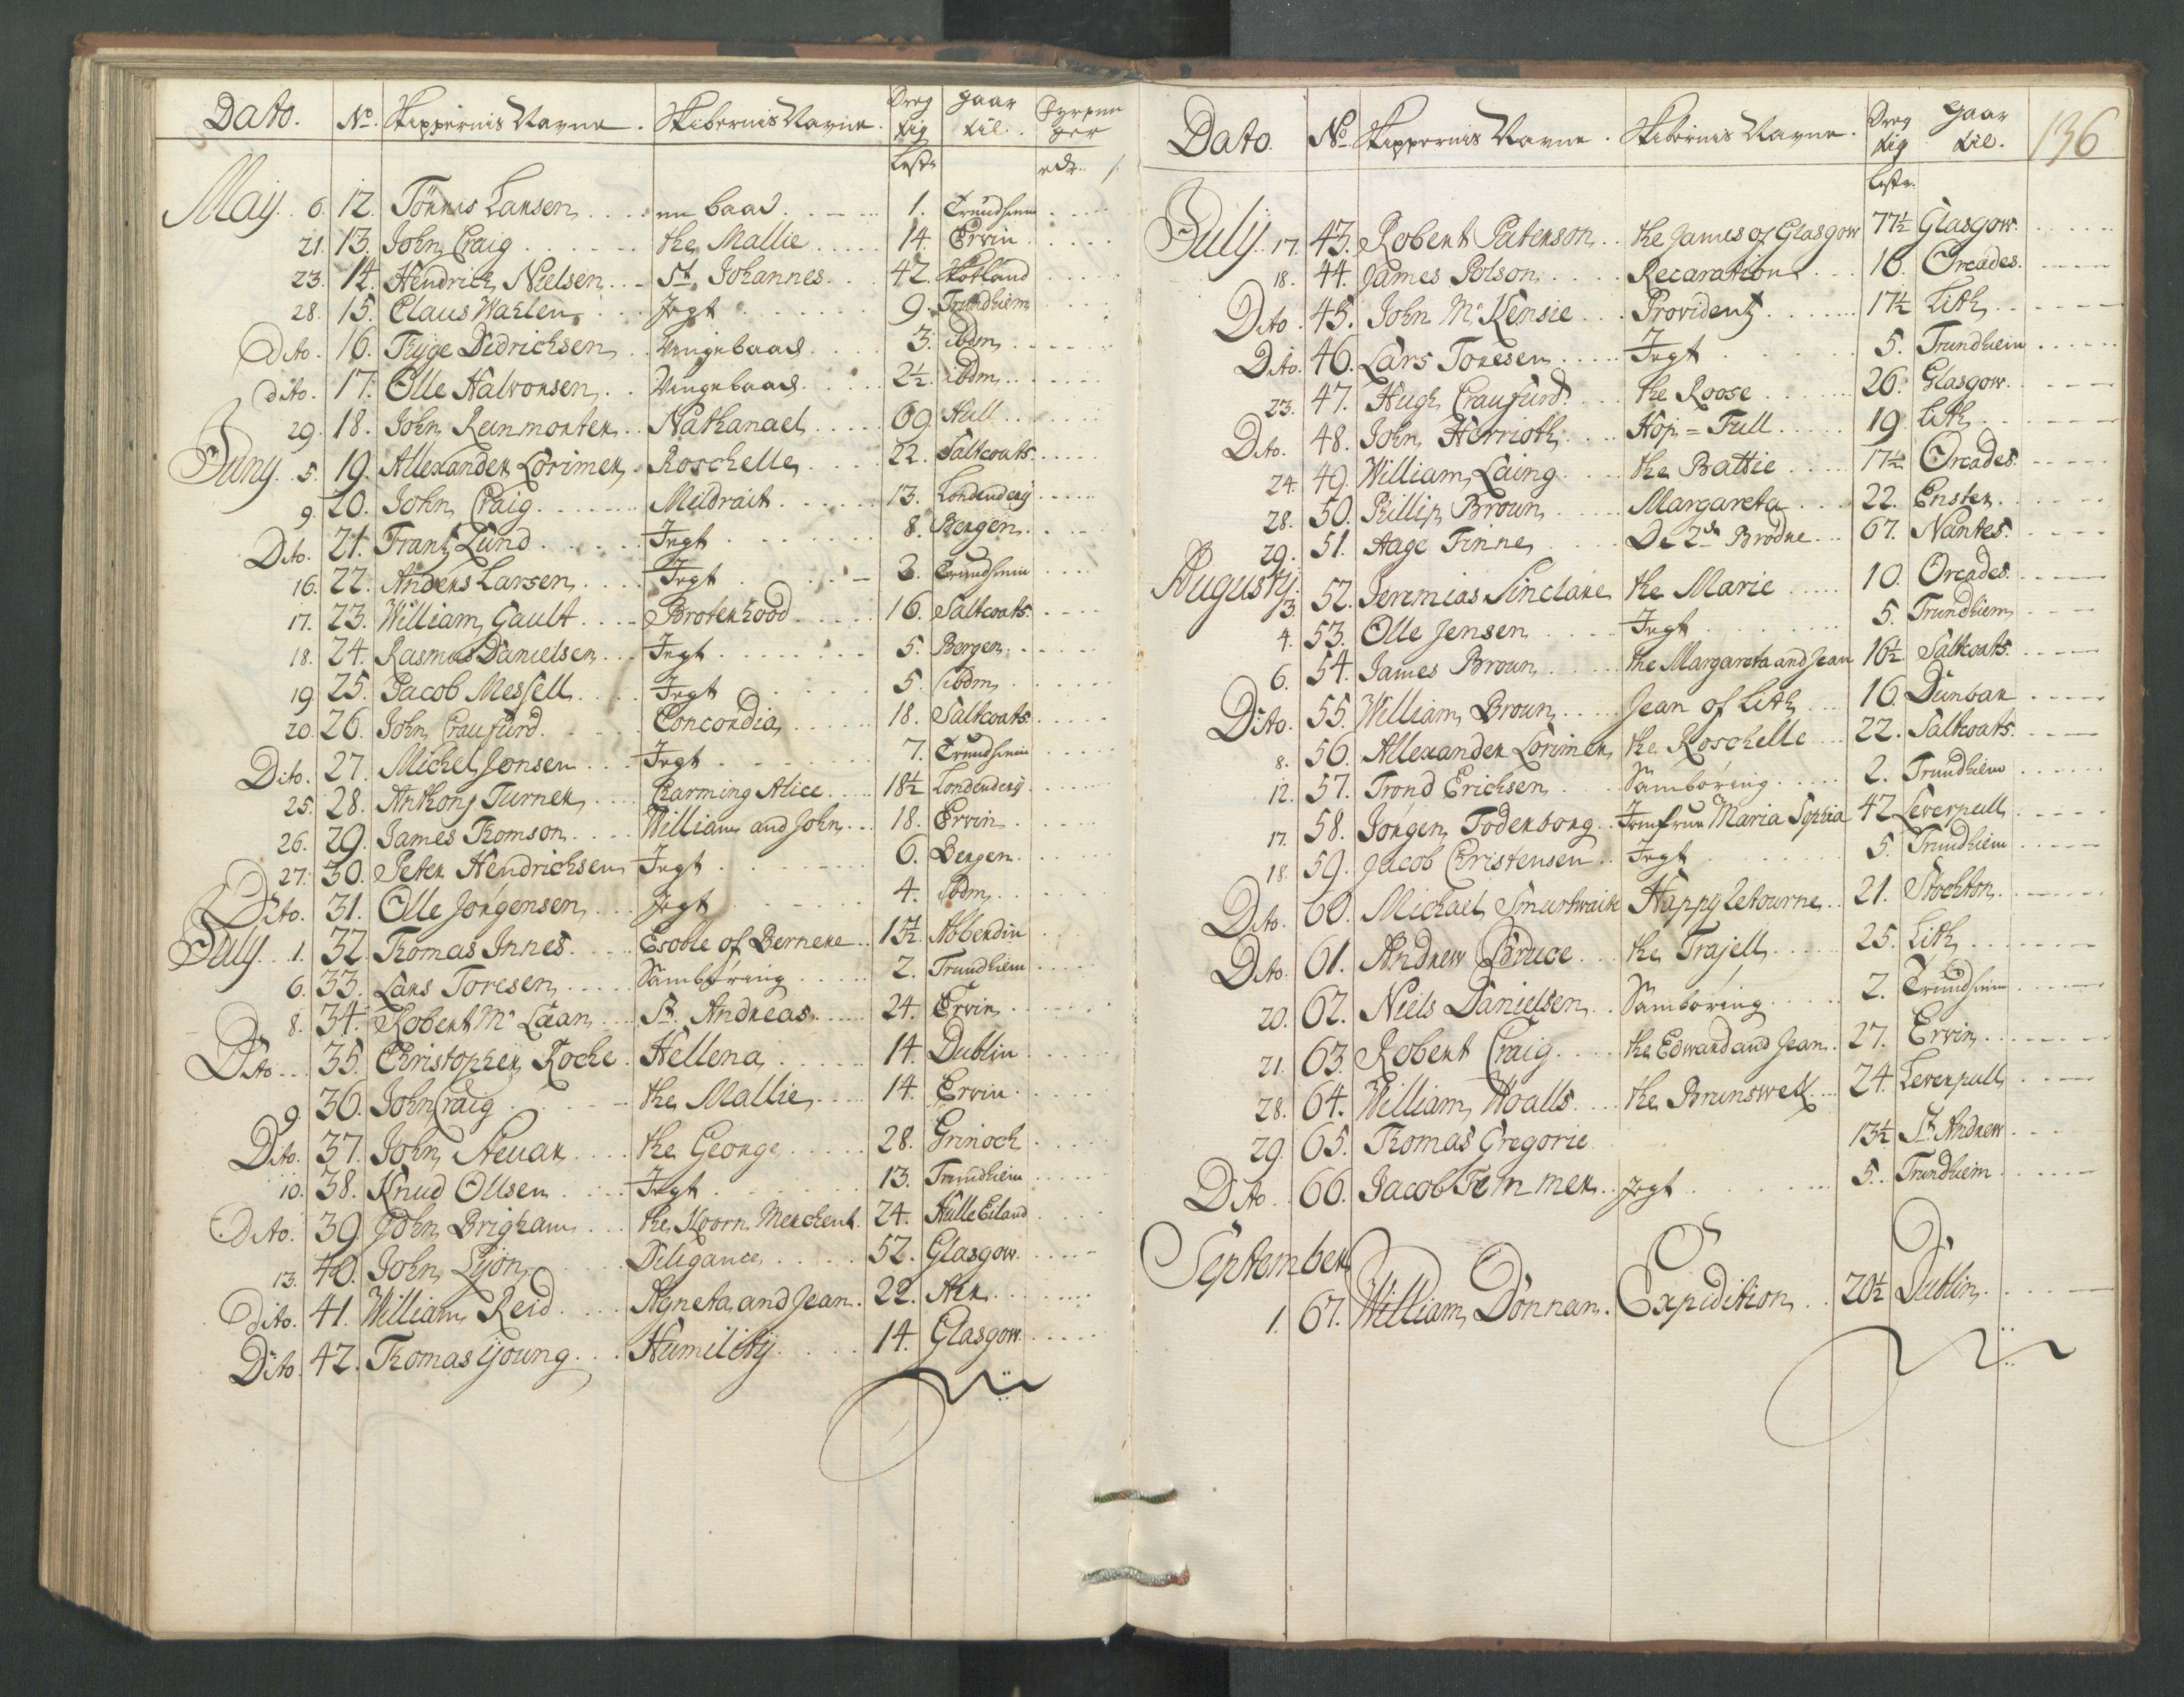 Dato. No. Skippernis Navne. Skibernis Navne. Dreg tig gaar til.
Lest.
May. 6. 12. Tönnes Larsen en baad 1. Trundhiem
21. 13. John Craig the Mallie 14. Ervin
23. 14. Hendrich Nielsen St. Johannes. 42. Skotland
28. 15. Claus Wahlen Jegt 9. Trundhiem
Dito. 16. Tryge Didrichsen Vengebaad 3. ibdm
dito. 17. Olle Halvorsen Vengebaad. 2½. ibdm
29. 18. John Reinmorter Nathanael 69. Hull
Juny. 5. 19. Allexander Lorimer Roschelle 22. Saltcoats
9. 20. John Craig Meidrait 13. Londendery
Dito. 21. Frantz Lund Jegt 8. Bergen
16. 22. Anders Larsen Jegt 3. Trundhiem
17. 23. William Gault Broterhood 16. Saltcoats.
18. 24. Rasmus Danielsen Jegt 5. Bergen
19 25. Jacob Messell Jegt 5. ibdm
20. 26. John Craufurd Concordia 18. Saltcoats
Dito. 27. Michel Jonsen Jegt 7. Trundhiem
25. 28. Anthony Turner Charming Alice 18½ Londendery
26. 29. James Thomson William and John 18. Ervin
27. 30. Peter Hendrichsen Jegt 6. Bergen
Dito. 31. Olle Jörgensen Jegt 4. ibdm
July. 1. 32. Thomas Innes Esoble of Bernere 13½ Abberdin
6. 33. Lars Toresen Samböring 2. Trundhiem
8. 34. Robert Mc Laan St. Andreas 24. Ervin
Dito 35. Christopher Roche Hellena 14. Dublin
9. 36. John Craig the Mallie 14. Ervin
Dito. 37. John Steuar the George 28. Grinoch
10. 38. Knud Ollsen Jegt 13. Trundhiem
Dito. 39. John Brigham the Koorn Merchent 24. Hulle Eiland
13. 40. John Lyon Deligance 52. Glasgow
Dito. 41. William Reid Agneta and Jean 22. Aer
Dito 42. Thomas Young Humility 14. Glasgow
136
Dato. No. Skippernis Navne. Skibernis Navne. Dreg tig gaar til.
Lest.
July 17. 43. Robert Paterson the James of Glasgow 77½ Glasgow
18. 44. James Polson Recaration 10. Orcades.
Dito 45. John Mc Kensie Providentz 17½ Lith
Dito. 46. Lars Toresen Jegt 5. Trundhiem
23. 47. Hugh Craufurd the Roose 26. Glasgow.
Dito. 48. John Herrioth Hop=Full 19. Lith
24. 49. William Laing the Battie 17½ Orcades.
28. 50. Phillip Broun Margareta 22. Enster
29. 51. Aage Finne De 2de Brödre 67. Nantes.
Augusty 3. 52. Jeremias Sinclare the Marie 10. Orcades
4. 53. Olle Jensen Jegt 5. Trundhiem
6. 54. James Broun the Margareta and Jean 16½ Saltcoats
Dito. 55. William Broun Jean of Lith 16. Dunbar
8. 56. Allexander Lorimer the Roschelle 22. Saltcoats.
12. 57. Trond Erichsen Samböring 2. Trundhiem
17. 58. Jörgen Todenborg Jomfrue Maria Sophia 42 Leverpull
18. 59. Jacob Christensen Jegt 5. Trundhiem
Dito. 60. Michael Smurtwaite Happy Retourne 21. Stockton
Dito. 61. Andrew Bruce the Trajell 25. Lith
20. 62. Niels Danielsen Samböring 2. Trundhiem
21. 63. Robert Craig the Edward and Jean. 27. Ervin
28. 64. William Woalls the Brunswell 24. Leverpull
29. 65. Thomas Gregorie 13½ St. Andrew
Dito 66. Jacob Temmer Jegt 5. Trundhiem
September
1. 67. William Dönnan. Expidition 20½ Dublin